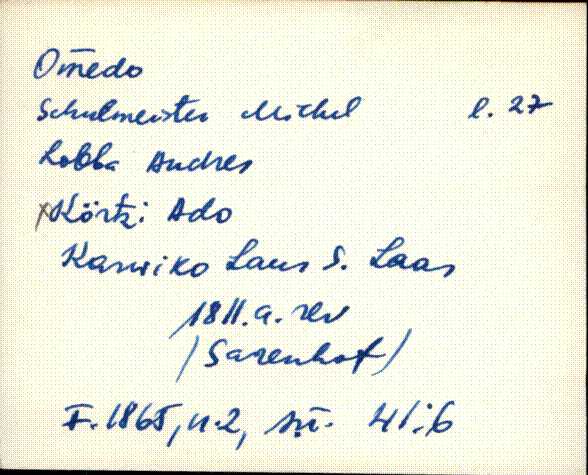 Omedo
Schulmeister Michel l. 27
Lobba Andres
x Körtzi Ado
Karwiko Laus S. Laas
1811.a. rev
(Sarenhof)
F. 1865, n.2, sü. 41:6